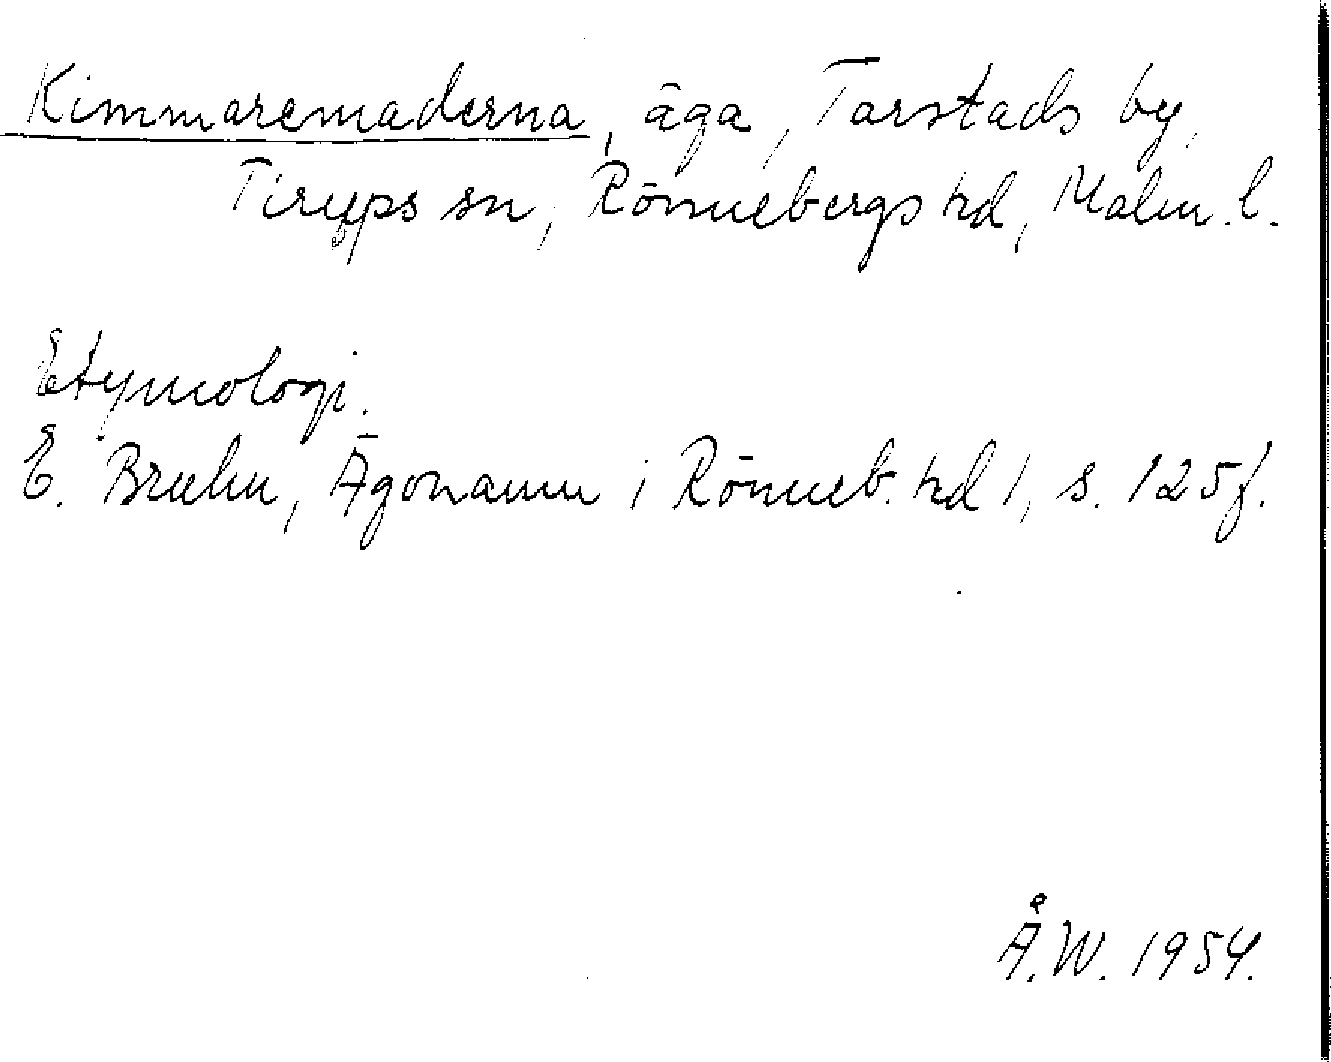 Kimmaremaderna, äga, Tarstads by,
Tirups sn, Rönnebergs hd, Malm. l.
Etymologi.
E. Bruhn, Ägonamn i Rönneb. hd 1, s. 125 f.
Å. W. 1954.